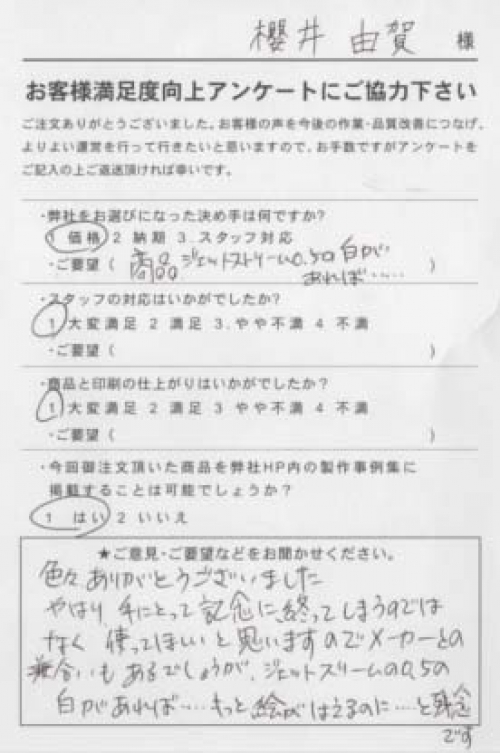 櫻井 由賀 様
お客様満足度向上アンケートにご協力下さい
ご注文ありがとうございました。お客様の声を今後の作業・品質改善につなげ、
よりよい運営を行って行きたいと思いますので、お手数ですがアンケートを
ご記入の上ご返送頂ければ幸いです。
・弊社をお選びになった決め手は何ですか?
1 価格 2 納期 3.スタッフ対応
・ご要望( 商品 ジェットストリーム0.5の白が
あれば‥‥‥ )
・スタッフの対応はいかがでしたか?
1 大変満足 2 満足 3.やや不満 4 不満
・ご要望( )
・商品と印刷の仕上がりはいかがでしたか?
1 大変満足 2 満足 3 やや不満 4 不満
・ご要望( )
・今回御注文頂いた商品を弊社HP内の製作事例集に
掲載することは可能でしょうか?
1 はい 2 いいえ
★ご意見・ご要望などをお聞かせください。
色々ありがとうございました
やはり、手にとって記念に終ってしまうのでは
なく 使ってほしいと思いますのでメーカーとの
兼合いもあるでしょうが、ジェットストリームの0.5の
白があれば‥‥もっと絵がはえるのに‥‥と残念
です